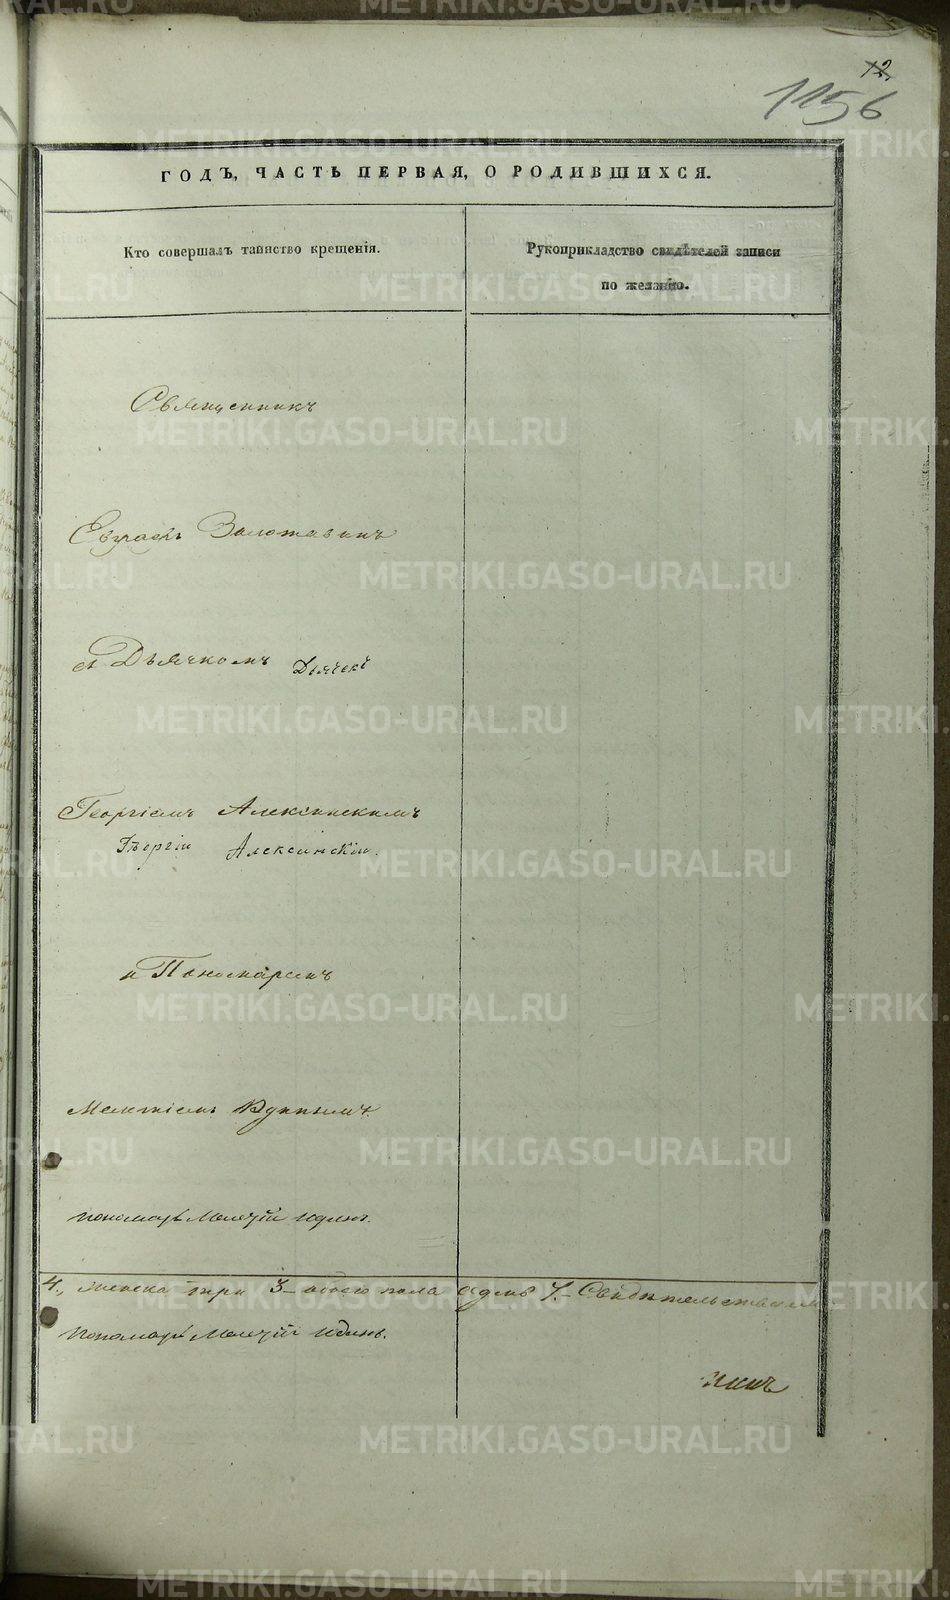 12.
1156
ГОДЪ, ЧАСТЬ ПЕРВАЯ, О РОДИВШИХСЯ.
Кто совершалъ таинство крещенія.
Рукоприкладство свидѣтелей записи
по желанію.
Священникъ
Золотавинъ
съ Дьячкомъ Дьячекъ
Георгіемъ Алексинскимъ
Георгіи Алексинскіи.
и Пономаремъ
Мелетіемъ
пономарь Мелетій
4., женска три 3_ обоего пола 7._ Свидѣтельствуемъ
пономарь Мелетій
METRIKI.GASO-URAL.RU